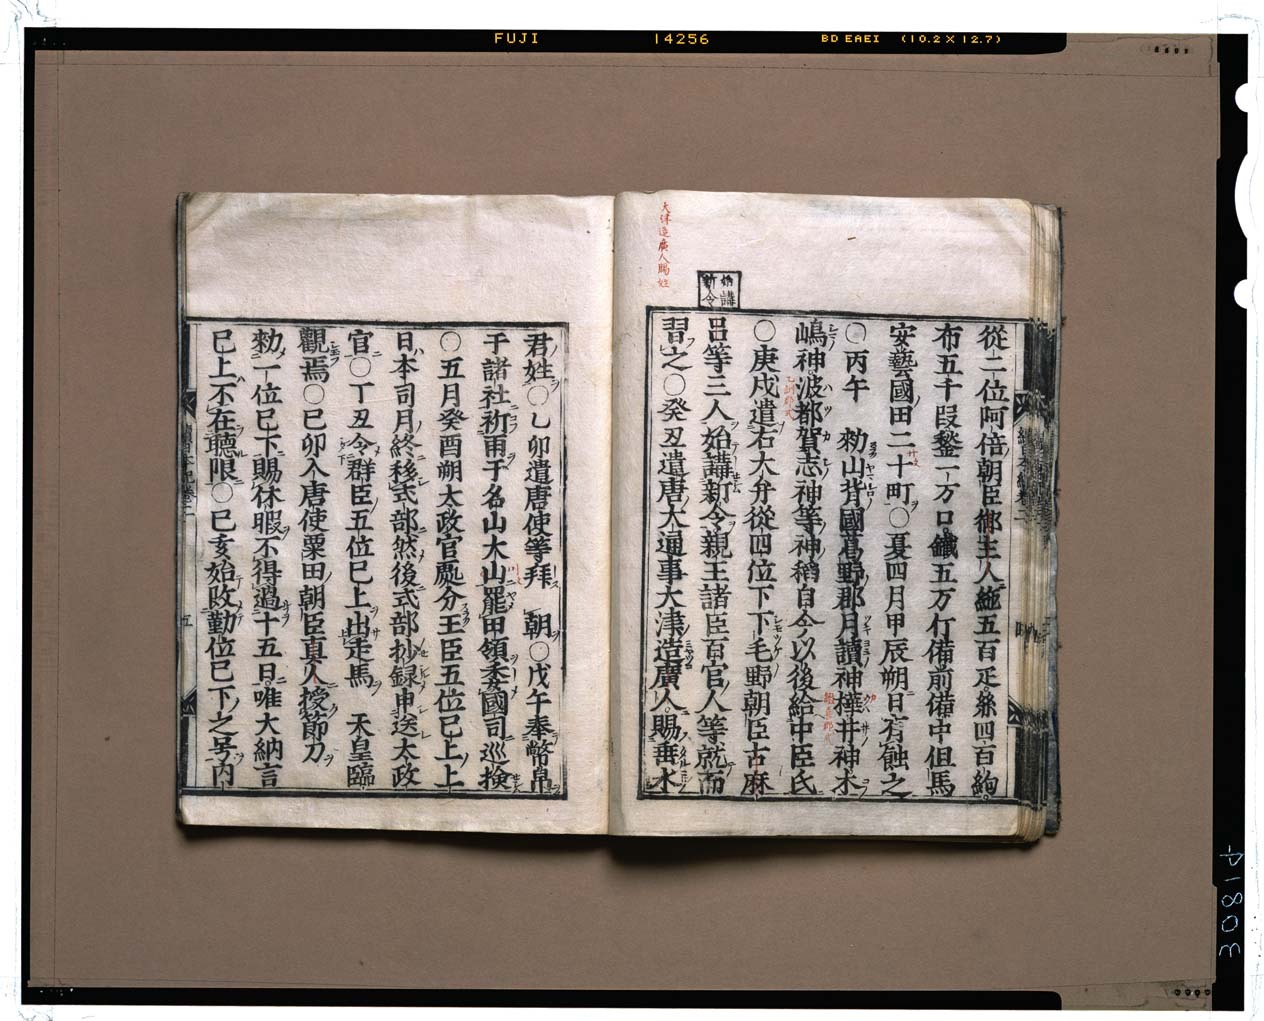 FUJI 14256 BD EAEI (10.2 X 12.7)
大津造廣人賜姓
始講
新令
從二位阿倍朝臣御主人絁五百疋糸四百絢
布五千段鍫一万口鐵五万斤備前備中但馬
安藝國田二十町○夏四月甲辰朔日有蝕之
○丙午 勅山背國葛野郡月讀神樺井神木
嶋神波都賀志神等神稻自今以後給中臣氏
○庚戌遣右大弁從四位下下毛野朝臣古麻
呂等三人始講新令親王諸臣百官人等就而
習之○癸丑遣唐大通事大津造廣人賜垂水
君姓○乙卯遣唐使等拜 朝○戊午奉幣帛
于諸社祈雨于名山大山罷田領委國司巡撿
○五月癸酉朔太政官處分王臣五位已上上
日本司月終移式部然後式部抄録申送太政
官○丁丑令群臣五位已上出走馬 天皇臨
觀焉○己卯入唐使粟田朝臣真人授節刀
勅一位已下賜休暇不得過十五日唯大納言
已上不在聽限○己亥始改勤位已下之号内
續日本紀卷二
五
3081中